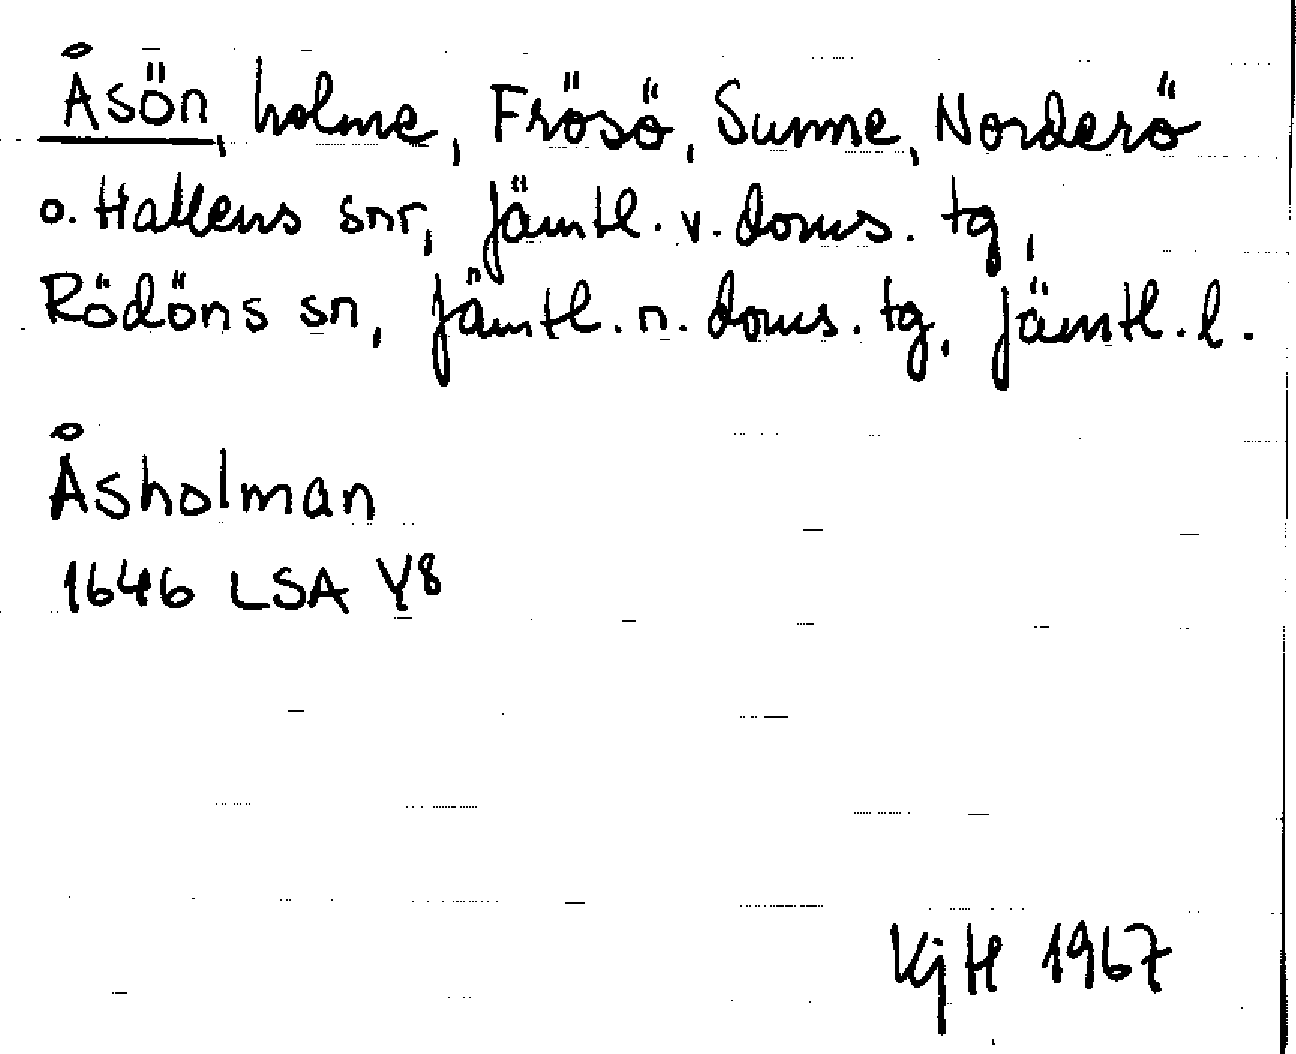 Åsön, holme, Frösö, Sunne, Norderö
o. Hallens snr, Jämtl. v. doms. tg,
Rödöns sn, Jämtl. n. doms. tg, Jämtl. l.
Åsholman
1646 LSA Y8
KjH 1967